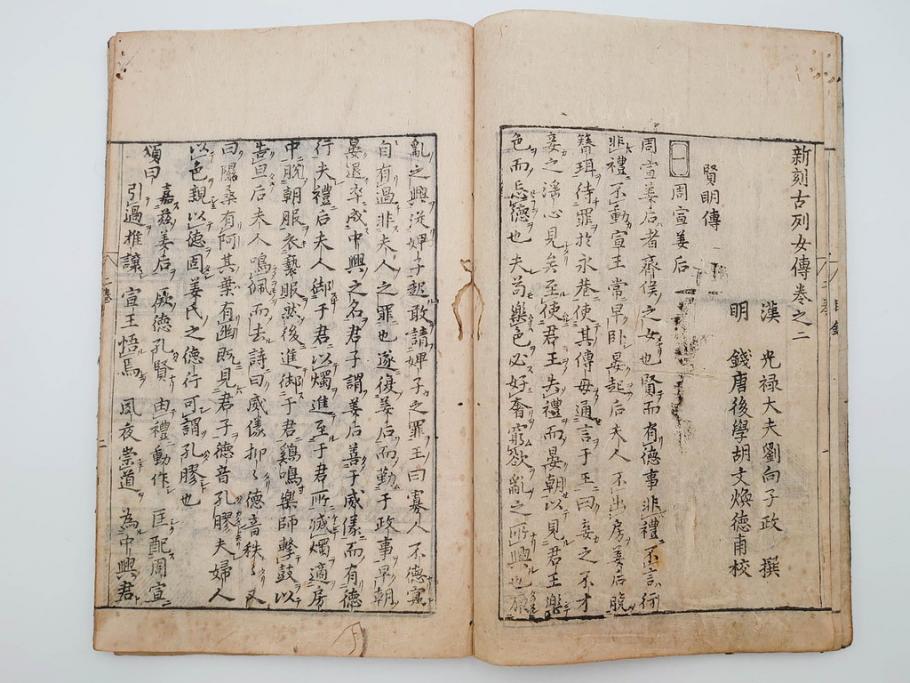 新刻古列女傳卷之二
漢 光祿大夫劉向子政 撰
明 錢唐後學胡文煥德甫校
賢明傳
周宣姜后
周宣姜后者齊侯之女也賢而有德事非禮不言行
非禮不動宣王常早臥晏起后夫人不出房姜后脫
簪珥待罪於永巷使其傅母通言于王曰妾之不才
妾之淫心見矣至使君王失禮而晏朝以見君王樂
色而忘德也夫苟樂色必好奢窮欲亂之所興也原
亂之興從婢子起敢請婢子之罪王曰寡人不德寔
自有過非夫人之罪也遂復姜后而勤于政事早朝
晏退卒成中興之名君子謂姜后善于威儀而有德
行夫禮后夫人御于君以燭進至于君所滅燭適房
中脫朝服衣褻服然後進御于君鷄鳴樂師擊鼓以
告旦后夫人鳴佩而去詩曰威儀抑抑德音秩秩又
曰隰桑有阿其葉有幽既見君子德音孔膠夫婦人
以色親以德固姜氏之德行可謂孔膠也
頌曰 嘉茲姜后 厥德孔賢 由禮動作 匡配周宣
引過推讓 宣王悟焉 夙夜崇道 為中興君